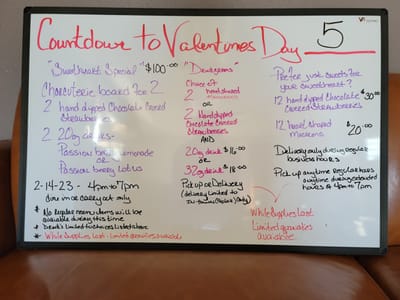 Countdown to Valentines Day 5
"Sweetheart Special" $100.00
Charcuterie board for 2
2 hand dipped Chocolate Covered
Strawberries
2 20oz drinks-
Passion berry Lemonade
or
Passion berry Lotus
2-14-23 - 4pm to 7pm
Dine in or carry out only
* No Regular menu items will be
available during this time
*
* While Supplies Last - Limited quantities available
"Dearlygrams"
Choice of
2 hand
OR
2 Hand dipped
Chocolate Covered
Strawberries
AND
20oz drink $16.00
OR
32oz drink $18.00
Pick up or Delivery
(delivery limited to
only)
Prefer just sweets for
your sweetheart?
12 hand dipped Chocolate $30.00
Covered Strawberries
12 hand
Macarons $20.00
Delivery only during regular
business hours
Pick up anytime Regular hours
anytime during extended
hours of 4pm to 7pm
While Supplies Last
Limited quantities
available